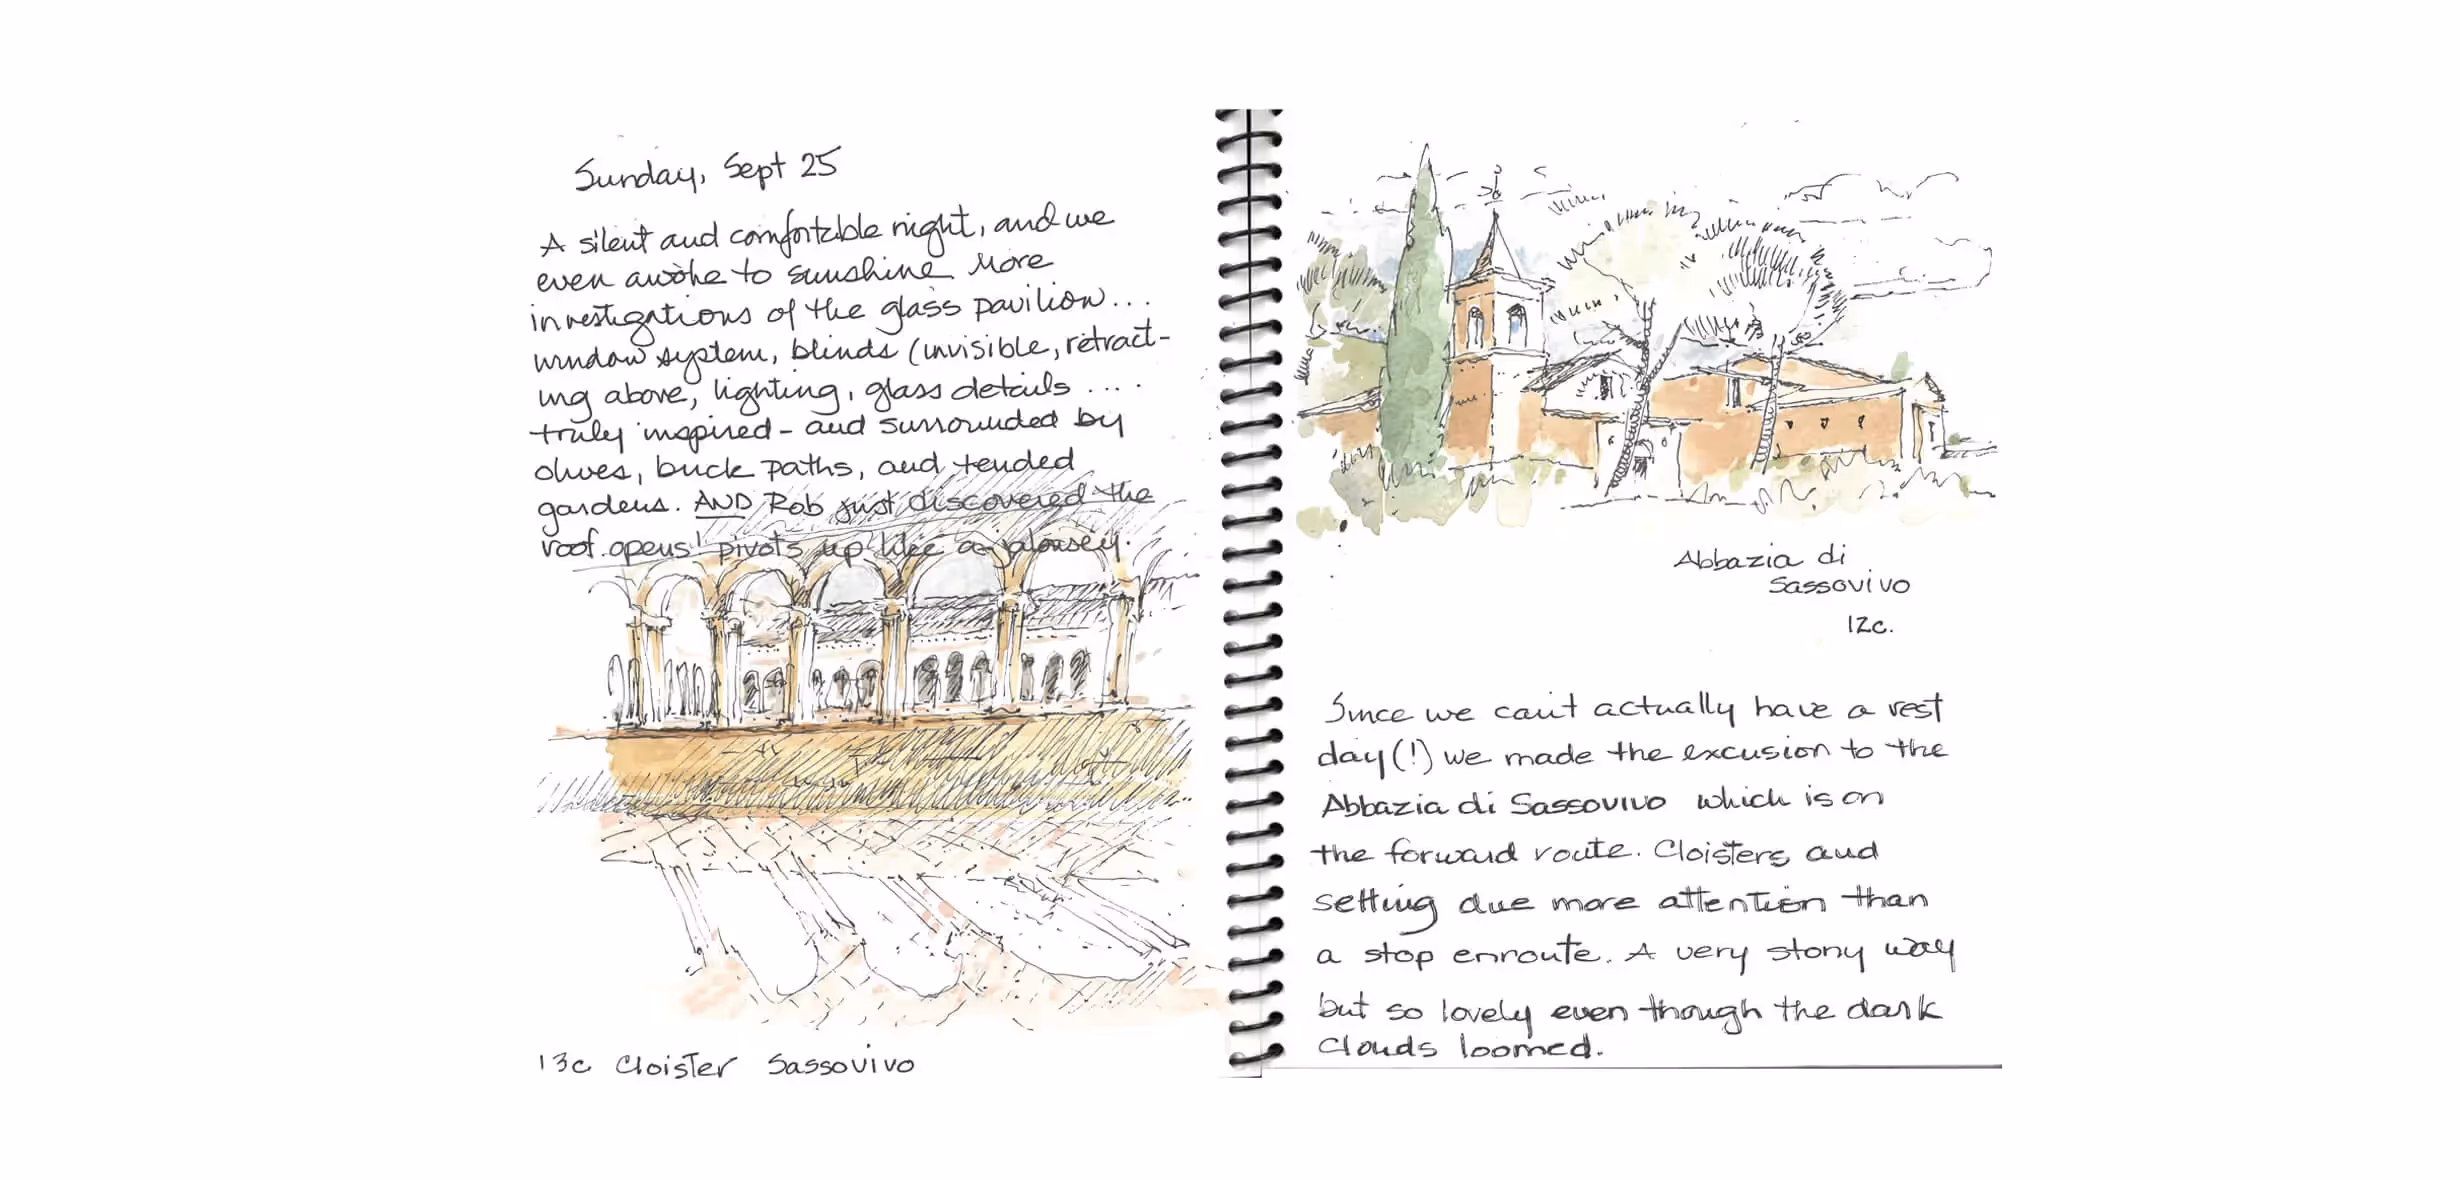 Sunday, Sept 25
A silent and comfortable night, and we
even awoke to sunshine. More
investigations of the glass pavilion...
window system, blinds (invisible, retract-
ing above, lighting, glass details ....
truly inspired - and surrounded by
olives, brick paths, and tended
gardens. AND Rob just discovered the
roof opens! pivots up like a jalousey.
13c Cloister Sassovivo
Abbazia di
Sassovivo
12c.
Since we can't actually have a rest
day(!) we made the excusion to the
Abbazia di Sassovivo which is on
the forward route. Cloisters and
setting due more attention than
a stop enroute. A very stony way
but so lovely even though the dark
clouds loomed.